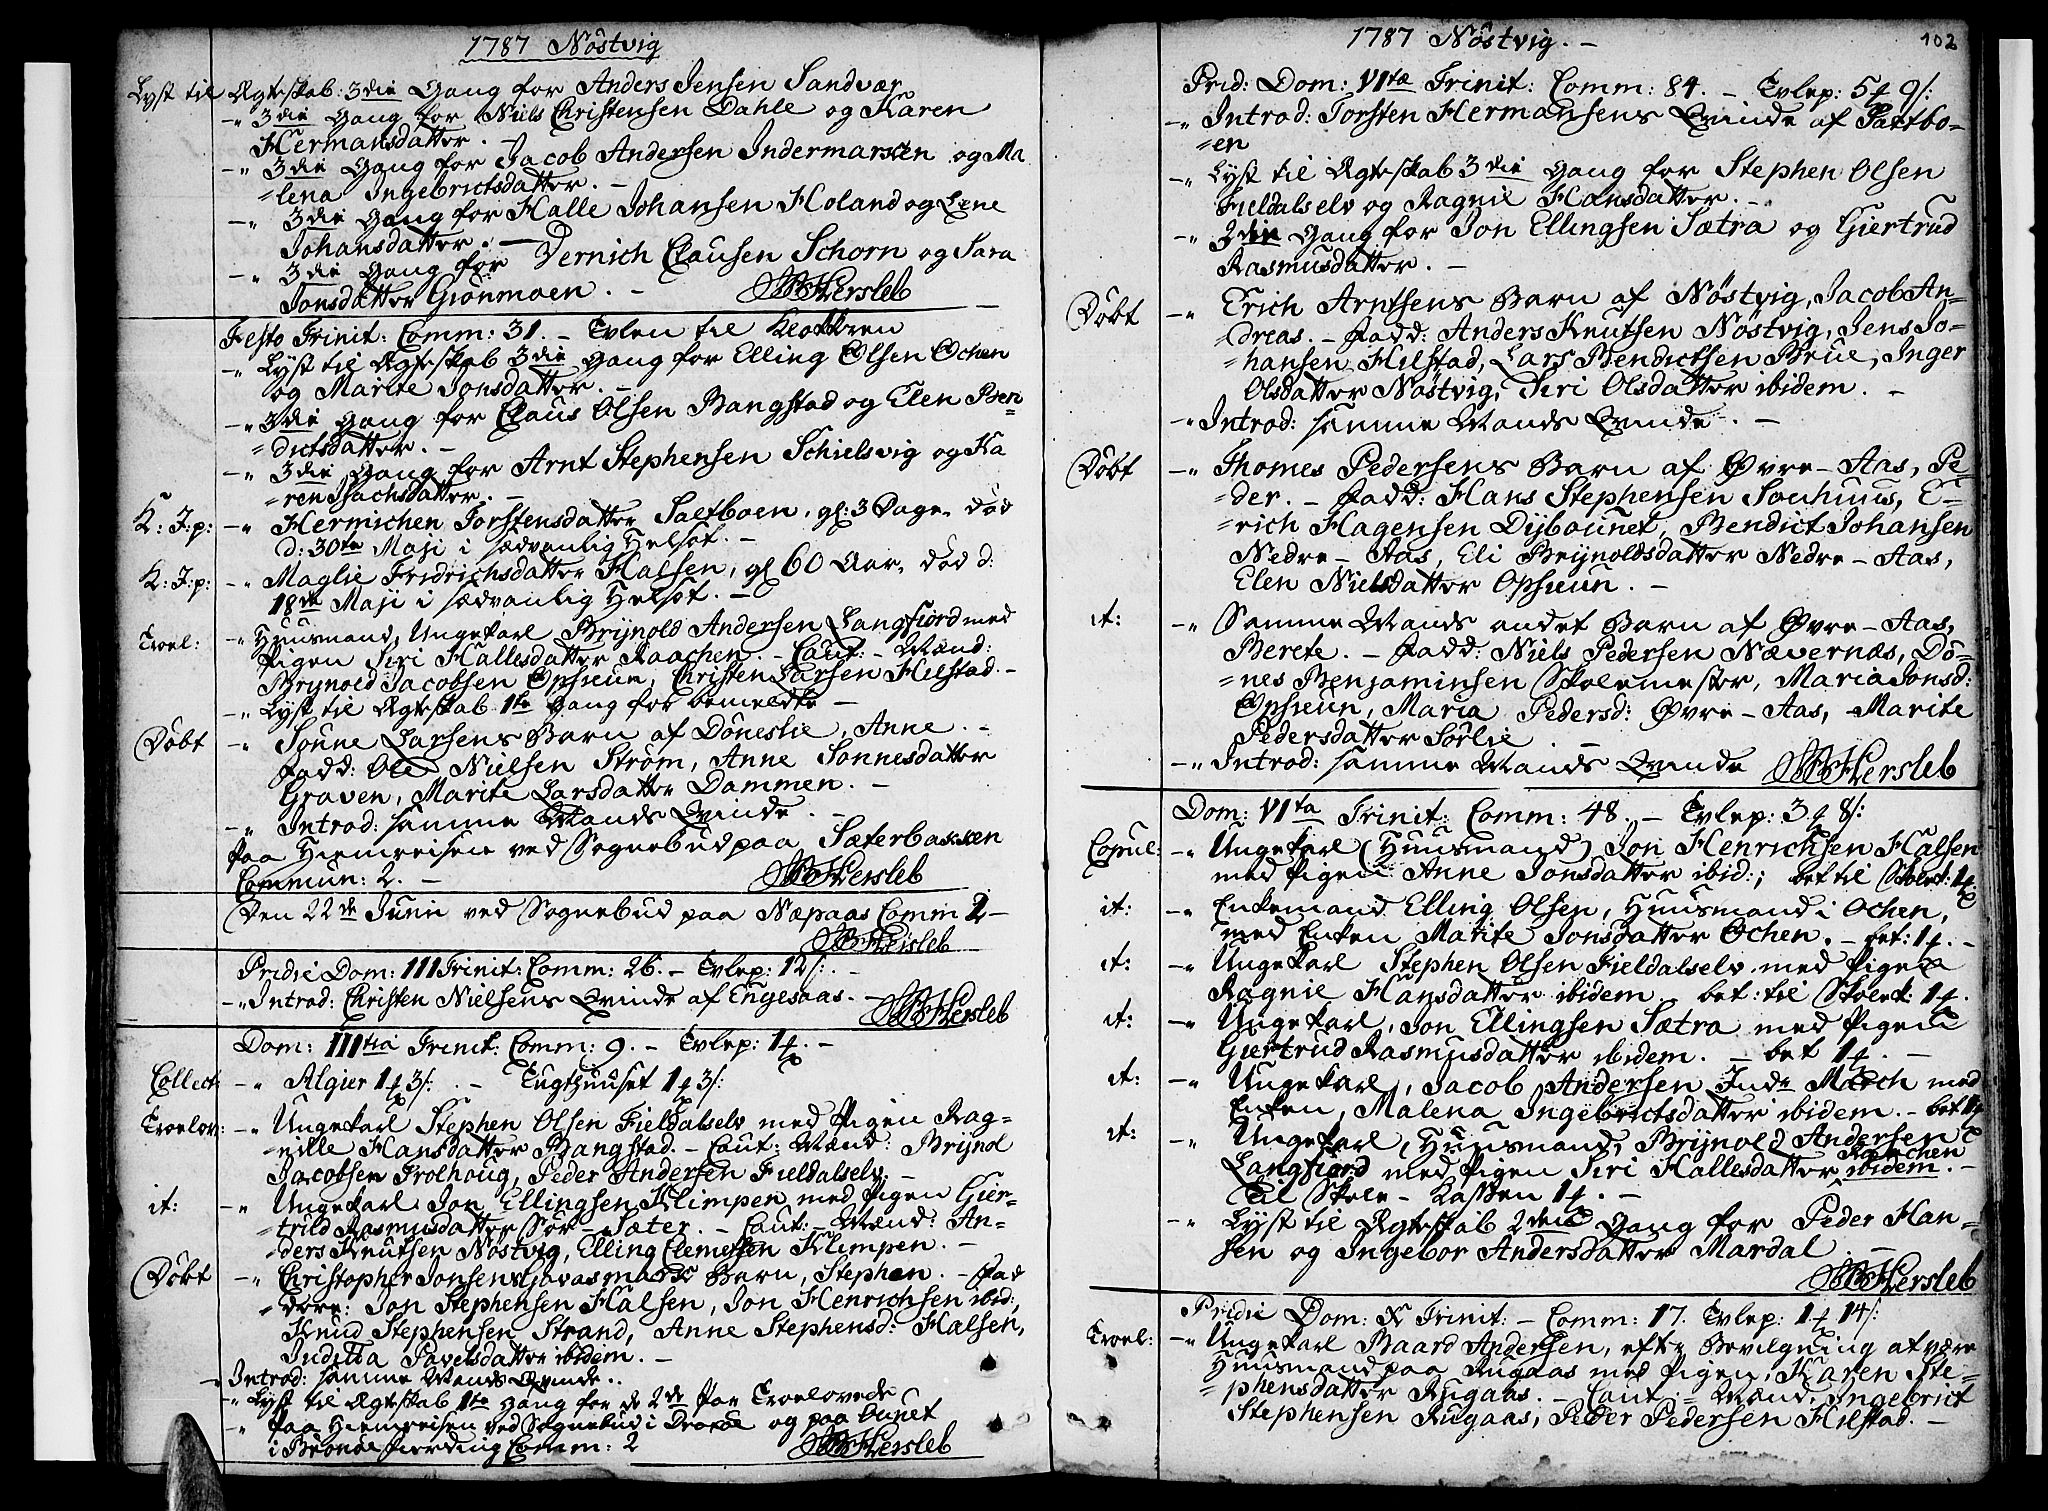 1787 Nöstvig
Lyst til Ægteskab: 3die Gang for Anders Jensen Sandvær
-" 3die Gang for Niels Christensen Dahle og Karen
Hermansdatter. -
-" 3die Gang for Jacob Andersen Indermarken og Ma
=lena Ingebrictsdatter. -
-" 3die Gang for Halle Johansen Holand og Lene
Johansdatter. -
-" 3die Gang for Vernich Clausen Schorn og Sara
Jonsdatter Grönmoen. -
Hersleb
Festo Trinit: Comm: 31. - Tvlen til Klokkeren
-" Lyst til Ægteskab 3die Gang for Elling Olsen Ochen
og Marite Jonsdatter. -
-" 3die Gang for Claus Olsen Bangstad og Elen Ben=
=dictsdatter. -
-" 3die Gang for Arnt Stephensen Schielsvig og Ka
=ren Isachsdatter. -
K: J: p: -" Hermichen Torstensdatter Saltboen, gl: 3 Dage, död
d: 30te Maji i sædvanlig Helsot. -
K: J: p: -" Maglie Fridrichsdatter Halsen, gl 60 Aar, död d:
18de Maji i sædvanlig Helsot. -
Troel: -" Huusmand, Ungekarl Brijnold Andersen Langfiord med
Pigen Siri Hallesdatter Raachen. - Caut: - Mænd:
Brijnold Jacobsen Opsieun, Christen Larsen Hilstad. -
-" Lyst til Ægteskab 1te Gang for bemeldte -
Döbt -" Sönne Larsens Barn af Döneslie, Anne. -
Fadd: Ole Nielsen Ström, Anne Sönnesdatter
Graven, Marite Larsdatter Dammen. -
-" Introd: samme Mands Qvinde. -
Paa Hiemreisen ved Sognebud paa Sæterbakken
Commun: 2. -
Hersleb
Den 22de Junii ved Sognebud paa Næpaas Comm 2 -
Hersleb
Pridie Dom: III Trinit: Comm: 26. - Tvlep: 12 s: -
-" Introd: Christen Nielsens Qvinde af Engesaas. -
Hersleb
Dom: IIItia Trinit: Comm: 9. - Tvlep: 1
Collect: -" Algier 1 3 s: - Tugthuuset 1 3 s:
Troelov: -" Ungekarl Stephen Olsen Fieldalselv med Pigen Rag=
=nille Hansdatter Bangstad. - Caut: Mænd: Brijnol
Jacobsen Trolhoug, Peder Andersen Fieldalselv -
it: -" Ungekarl Jon Ellingsen Klimpen med Pigen Gier=
=trud Rasmusdatter Sör-Sæter. - Caut: - Mænd: An=
=ders Knutsen Nöstvig, Elling Clemetsen Klempen. -
Döbt -" Christopher Jonsens Gavasmark Barn, Stephen. - Fad
=dere: Jon Stephensen Halsen, Jon Henrichsen ibid:
Knud Stephensen Strand, Anne Stephensd: Halsen,
Juditta Pavelsdatter ibidem. -
-" Introd: samme Mands Qvinde..
-" Lyst til Ægteskab 1te Gang for de 2de Par Troelovede
-" Paa Hiemreisen ved Sognebud i og paa
i Brönöe fierding Comm: 2
Hersleb
1787 Nöstvig. - 102
Prid: Dom: VItæ Trinit: Comm: 84. - Tvlep: 5 9 s:
-" Introd: Torsten Hermansens Qvinde af Saltbo=
=en
-" Lyst til Ægteskab 3die Gang for Stephen Olsen
Fieldalselv og Ragnil Hansdatter. -
-" 3die Gang for Jon Ellingsen Sætra og Giertrud
Rasmusdatter. -
Döbt -" Erich Arntsens Barn af Nöstvig, Jacob An=
=dreas. - Fadd: Anders Knutsen Nöstvig, Jens Jo=
=hansen Hilstad, Lars Bendictsen Brue, Inger
Olsdatter Nöstvig, Siri Olsdatter ibidem. -
-" Introd: samme Mands Qvinde. -
Döbt -" Thomes Pedersens Barn af Övre-Aas, Pe=
=der. - Fadd: Hans Stephensen Souhuus, E=
=rich Hagensen Dijbounet, Bendict Johansen
Nedre-Aas, Eli Brijnoldsdatter Nedre-Aas,
Elen Nielsdatter Opsieun. -
it: -" Samme Mands andet Barn af Övre-Aas,
Berete. - Fadd: Niels Pedersen Nævernæs, Dö=
=nes Benjaminsen Skolemester, Maria Jonsd:
Opsieun, Maria Pedersd: Övre-Aas, Marite
Pedersdatter Sörlie. -
-" Introd: samme Mands Qvinde
Hersleb
Dom: VIta Trinit: Comm: 48. - Tvlep: 3 8 s:
Copul: -" Ungekarl (Huusmand) Jon Henrichsen Halsen
med Pigen Anne Jonsdatter ibid:; bet til Skoelk: 1
it: -" Enkemand Elling Olsen, Huusmand i Ochen,
med Enken Marite Jonsdatter Ochen. - bet: 1 . -
it: -" Ungekarl Stephen Olsen Fieldalselv med Pigen
Ragnil Hansdatter ibidem. bet: til Skoelk: 1 .
it: -" Ungekarl, Jon Ellingsen Sætra med Pigen
Giertrud Rasmusdatter ibidem. - bet 1 . -
it: -" Ungekarl, Jacob Andersen Inde March med
Enken, Malena Ingebrictsdatter ibidem. - bet 1
it: -" Ungekarl, Huusmand, Brijnold Andersen
Langfiord med Pigen Siri Hallesdatter Raachen ibidem. -
Til Skole-Kassen 1 . -
-" Lyst til Ægteskab 2den Gang for Peder Han=
sen og Ingebor Andersdatter Mardal. -
Hersleb
Pridie Dom: X Trinit: - Comm: 17. Tvlep: 1 14 s:
Troel: -" Ungekarl Baard Andersen, efter Bevilgning at være
Huusmand paa Rugaas med Pigen, Karen Ste=
=phensdatter Rugaas. - Caut: = Mænd, Ingebrict
Stephensen Rugaas, Peder Pedersen Hilstad. -